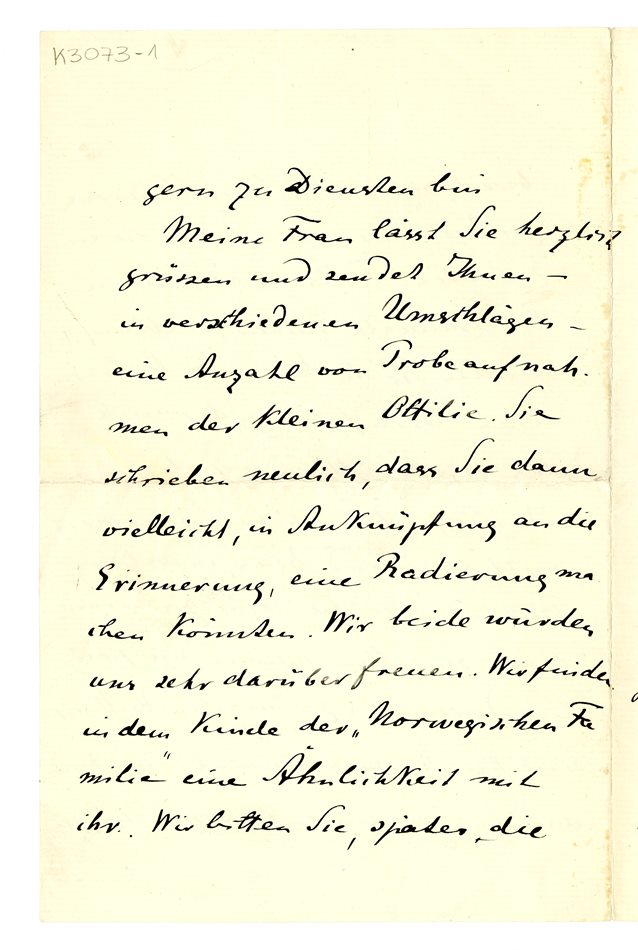 K3073-1
gern zu Diensten bin
Meine Frau lässt Sie herzlich
grüssen und sendet Ihnen –
in verschiedenen Umschlägen –
eine Anzahl von Probeaufnah-
men der kleinen Ottilie. Sie
schrieben neulich, dass Sie dann
vielleicht, in Anknüpfung an die
Erinnerung, eine Radierung ma
chen könnten. Wir beide würden
uns sehr darüber freuen. Wir finden
in dem Kinde der „Norwegischen Fa
milie" eine Ähnlichkeit mit
ihr. Wir bitten Sie, später die